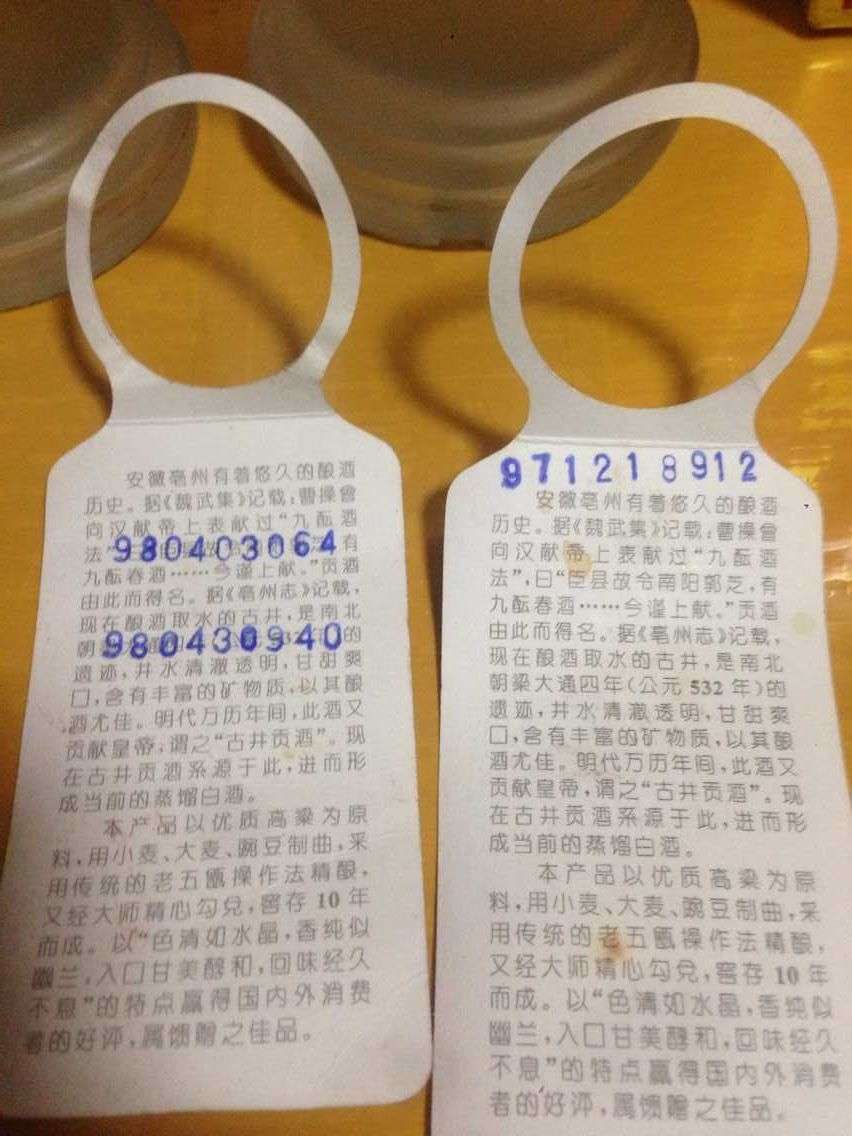 安徽亳州有着悠久的酿酒
历史。据《魏武集》记载:曹操曾
向汉献帝上表献过“九酝酒
980403064
法” 有
九酝春酒……今谨上献。”贡酒
由此而得名。据《亳州志》记载,
现在酿酒取水的古井,是南北
980430940
朝 的
遗迹,井水清澈透明,甘甜爽
口,含有丰富的矿物质,以其酿
酒尤佳。明代万历年间,此酒又
贡献皇帝,谓之“古井贡酒”。现
在古井贡酒系源于此,进而形
成当前的蒸馏白酒。
本产品以优质高粱为原
料,用小麦、大麦、豌豆制曲,采
用传统的老五甑操作法精酿,
又经大师精心勾兑,窖存10年
而成。以“色清如水晶,香纯似
幽兰,入口甘美醇和,回味经久
不息”的特点赢得国内外消费
者的好评,属馈赠之佳品。
971218912
安徽亳州有着悠久的酿酒
历史。据《魏武集》记载:曹操曾
向汉献帝上表献过“九酝酒
法”,曰“臣县故令南阳郭芝,有
九酝春酒……今谨上献。”贡酒
由此而得名。据《亳州志》记载,
现在酿酒取水的古井,是南北
朝梁大通四年(公元532年)的
遗迹,井水清澈透明,甘甜爽
口,含有丰富的矿物质,以其酿
酒尤佳。明代万历年间,此酒又
贡献皇帝,谓之“古井贡酒”。现
在古井贡酒系源于此,进而形
成当前的蒸馏白酒。
本产品以优质高粱为原
料,用小麦、大麦、豌豆制曲,采
用传统的老五甑操作法精酿,
又经大师精心勾兑,窖存10年
而成。以“色清如水晶,香纯似
幽兰,入口甘美醇和,回味经久
不息”的特点赢得国内外消费
者的好评,属馈赠之佳品。